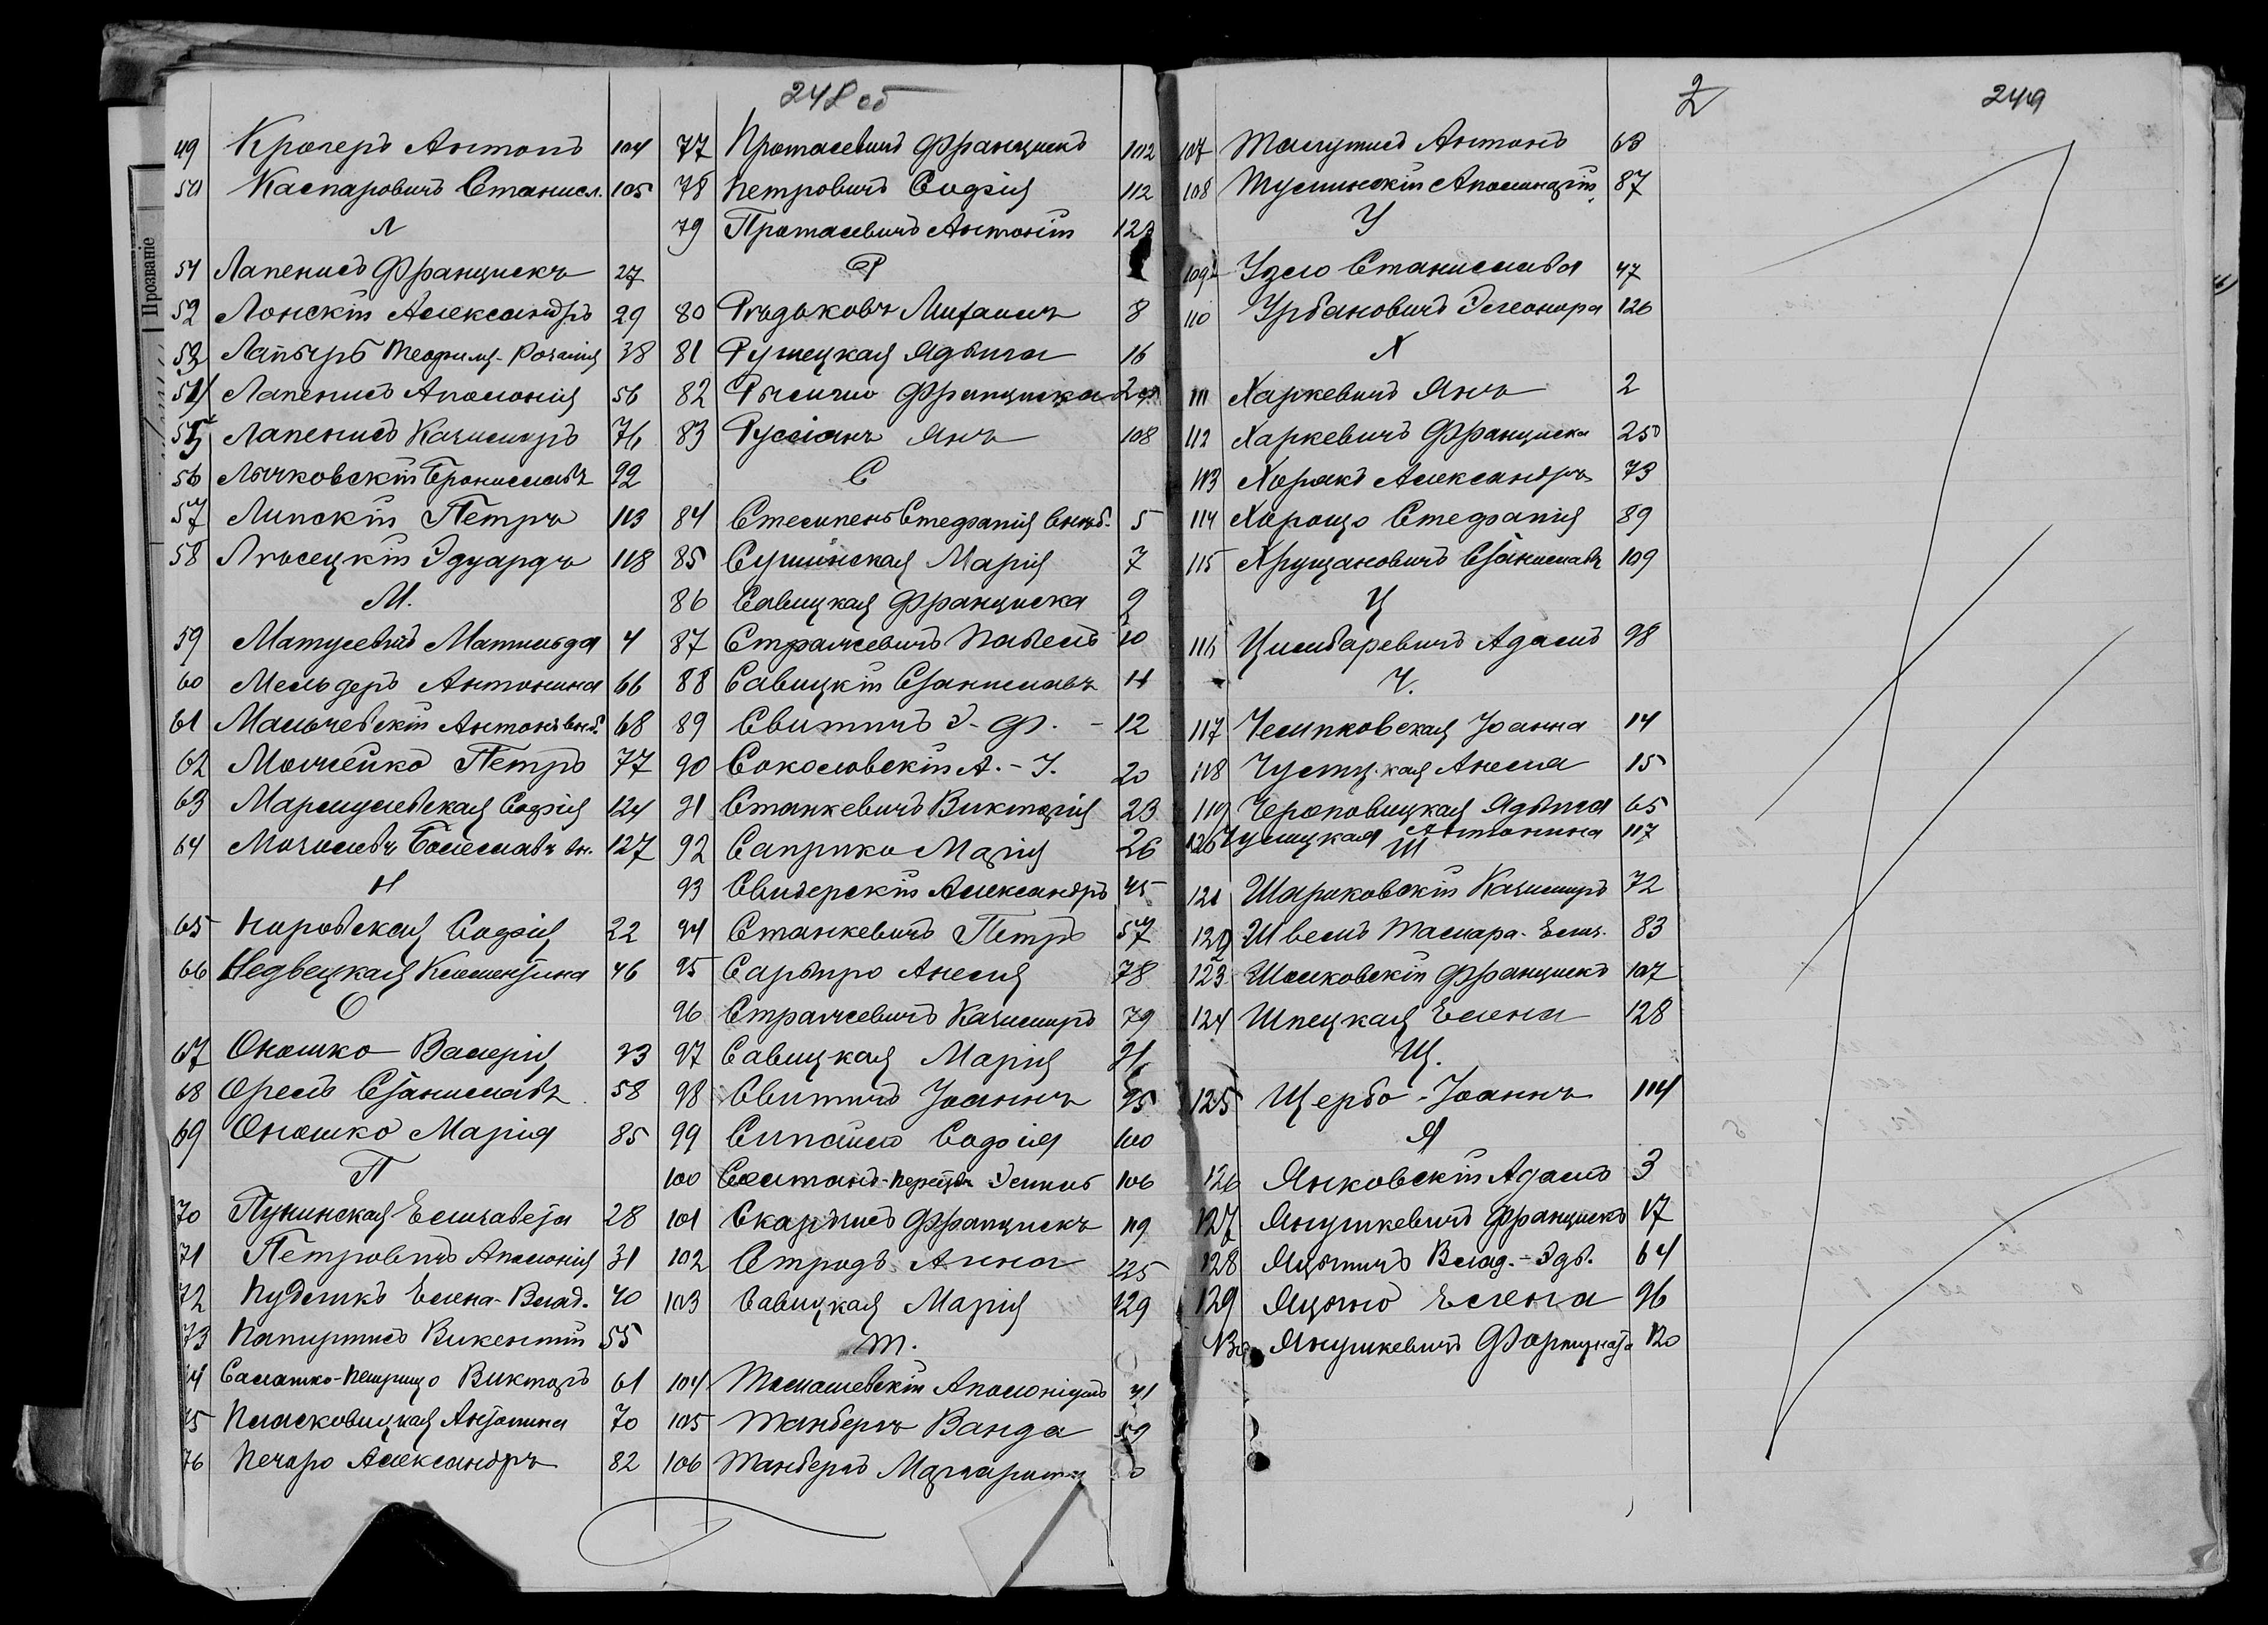 248 об
49 Крогеръ Антонъ 104
50 Каспаровичъ Станисл. 105
Л
51 Лапенисъ Францискъ 27
52 Лонскій Александръ 29
53 Лапыръ Теофиля-Розалія 38
54 Лапенисъ Аполонія 56
55 Лапенисъ Казиміръ 76
56 Лычковскій Брониславъ 92
57 Липскій Петръ 113
58 Лѣсецкій Эдуардъ 118
М.
59 Матусевичъ Матильда 4
60 Мельдеръ Антонина 66
61 Мальчевскій Антонъ внѣб. 68
62 Мончейко Петръ 77
63 Марцулевская Софія 124
64 Болеславъ вн. 127
Н
65 Наровская Софія 22
66 Недвецкая Клементина 46
О
67 Оношко Валерія 33
68 Орелъ Станиславъ 58
69 Оношко Марія 85
П
70 Пунинская Елизавета 28
71 Петровичъ Аполонія 31
72 Пудемкъ Елена-Влад. 40
73 Папиртисъ Викентій 55
74 Саматко- Викторъ 61
75 Плясковицкая Антонина 70
76 Печаро Александръ 82
77 Протасевичъ Францискъ 102
78 Петровичъ Софія 112
79 Протасевичъ Антоній 122
Р
80 Рѣдьковъ Михаилъ 8
81 Рушецкая Ядвига 16
82 Франциска
83 Руссіанъ Янъ 108
С
84 Стемпень Стефанія внѣб. 5
85 Сушинская Марія 7
86 Савицкая Франциска 9
87 Стралчевичъ Павелъ 10
88 Савицкій Станиславъ 11
89 Свитичъ Э. Ф. - 12
90 Соколовскій А.-І. 20
91 Станкевичъ Викторія 23
92 Саприко Марія 26
93 Свидерскій Александръ 45
94 Станкевичъ Петръ 57
95 Анеля 78
96 Стралчевичъ Казиміръ 79
97 Савицкая Марія 91
98 Свитичъ Іоаннъ 95
99 Сипайло Софія 100
100 Султанъ- 106
101 Скардисъ Францискъ 119
102 Стродъ Анна 125
103 Савицкая Марія 129
Т.
104 Томашевскій 41
105 Танбергъ Ванда 59
106 Танбергъ Маргарита
2 249
107 Талутисъ Антонъ 63
108 87
У
109 Узло Станислава 47
110 Урбановичъ Элеонора 126
Х
111 Харкевичъ Янъ 2
112 Харкевичъ Франциска 25
113 Хоракъ Александръ 73
114 Хорощо Стефанія 89
115 Хрущановичъ Станиславъ 109
Ц
116 Цимбаревичъ Адамъ 98
Ч.
117 Чемпковская Іоанна 14
118 Анеля 15
119 Чероповицкая Ядвига 65
120 Антонина 117
Ш
121 Шариковскій Казиміръ 72
122 Швелъ Тамара-Елиз. 83
123 Шолковскій Францискъ 107
124 Шпецкая Елена 128
Щ.
125 Щербо-Іоаннъ 114
Я
126 Янковскій Адамъ 3
127 Янушкевичъ Францискъ 17
128 Яцыничъ Влад.-Эдв. 64
129 Яцыно Елена 96
130 Янушкевичъ Фортуната 120
Прозваніе